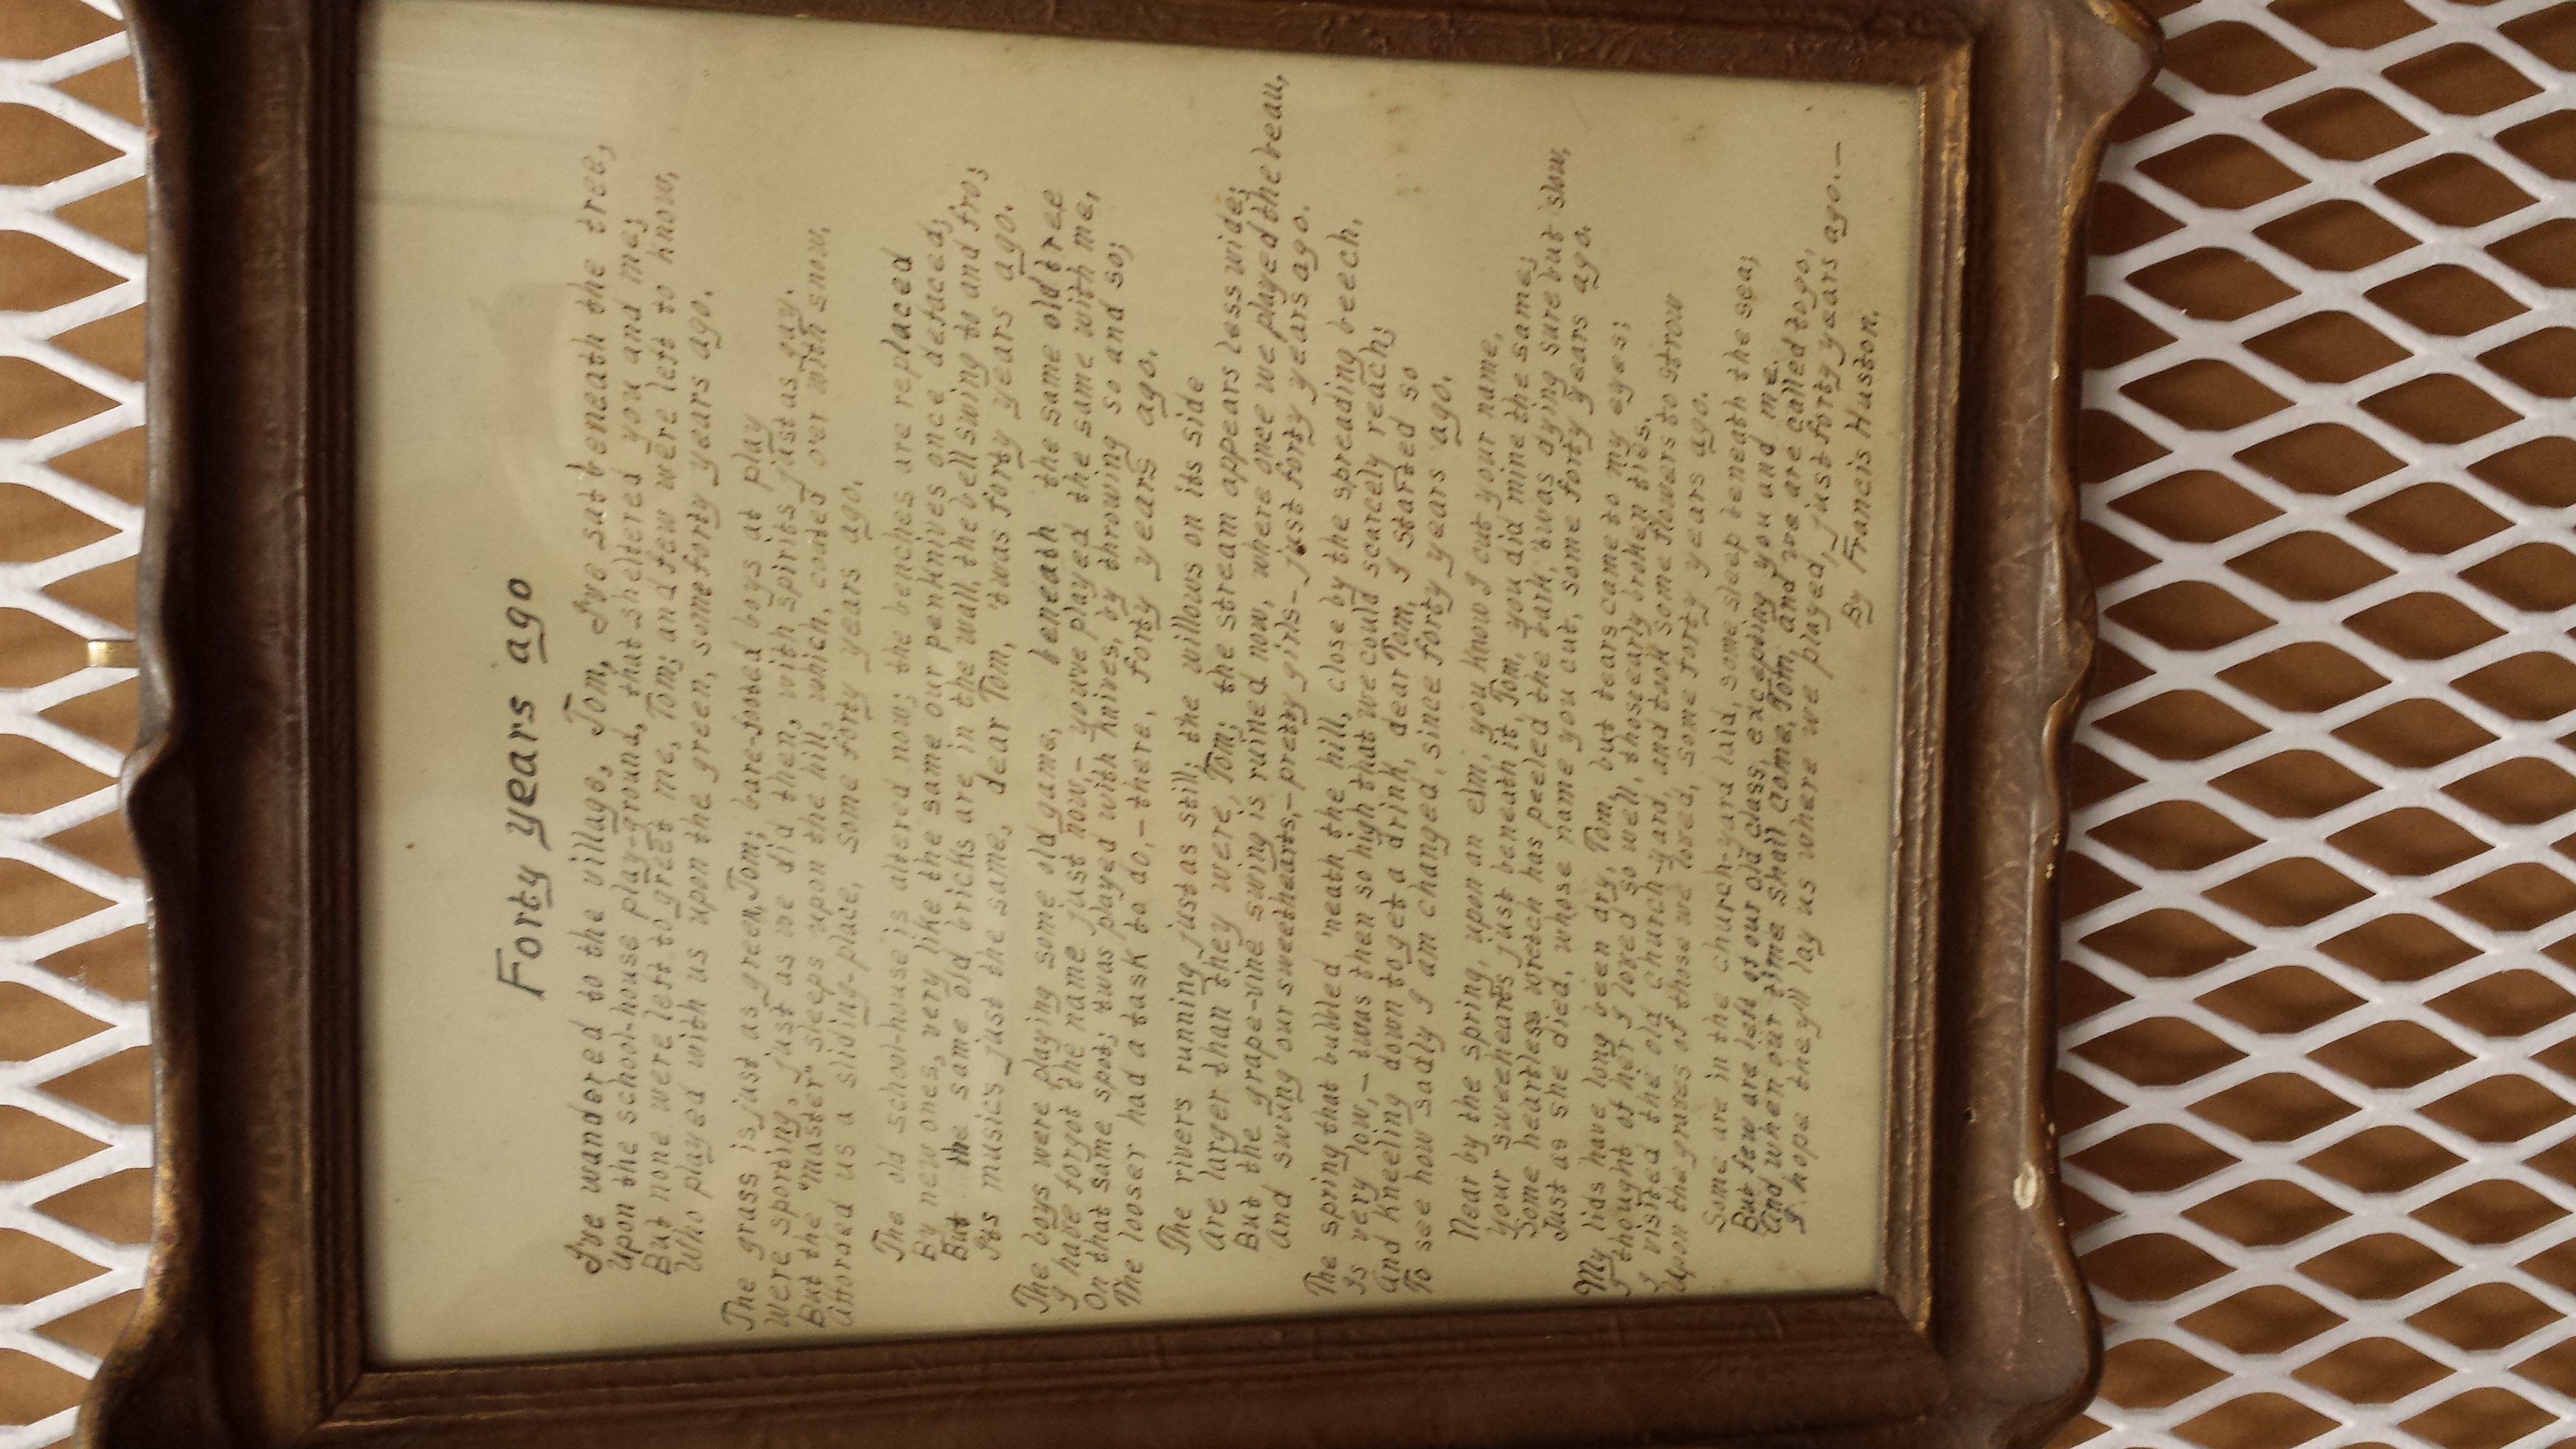 Forty years ago
I've wandered to the village, Tom, I've sat beneath the tree,
Upon the school-house play-ground, that sheltered you and me;
But none were left to greet me, Tom; and few were left to know,
Who played with us upon the green, some forty years ago.
The grass is just as green, Tom; bare-footed boys at play
Were sporting, just as we did then, with spirits just as gay.
But the "master" sleeps upon the hill, which, coated over with snow,
Afforded us a sliding-place, some forty years ago.
The old school-house is altered now; the benches are replaced
By new ones, very like the same our penknives once defaced;
But the same old bricks are in the wall, the bell swing to and fro;
Its music's just the same, dear Tom, 'twas forty years ago.
The boys were playing some old game, beneath the same old tree
I have forgot the name just now,- you've played the same with me,
On that same spot; 'twas played with knives, by throwing so and so;
The looser had a task to do,- there, forty years ago.
The rivers running just as still; the willows on its side
Are larger than they were, Tom; the stream appears less wide;
But the grape-vine swing is ruined now, where once we played the beau,
And swung our sweethearts,- pretty girls- just forty years ago.
The spring that bubbled 'neath the hill, close by the spreading beech,
Is very low,- 'twas then so high that we could scarcely reach;
And kneeling down to get a drink, dear Tom, I started so
To see how sadly I am changed, since forty years ago.
Near by the spring, upon an elm, you know I cut your name,
Your sweehearts just beneath it, Tom, you did mine the same;
Some heartless wretch has peeled the bark, 'twas dying sure but slow,
Just as she died, whose name you cut, some forty years ago.
My lids have long been dry, Tom, but tears came to my eyes;
I thought of her I loved so well, those early broken ties.
I visited the old church-yard, and took some flowers to strow
Upon the graves of those we loved, some forty years ago.
Some are in the church-yard laid, some sleep beneath the sea;
But few are left of our old class, excepting you and me.
And when our time shall come, Tom, and we are called to go,
I hope they'll lay us where we played, just forty years ago.—
By Francis Huston.